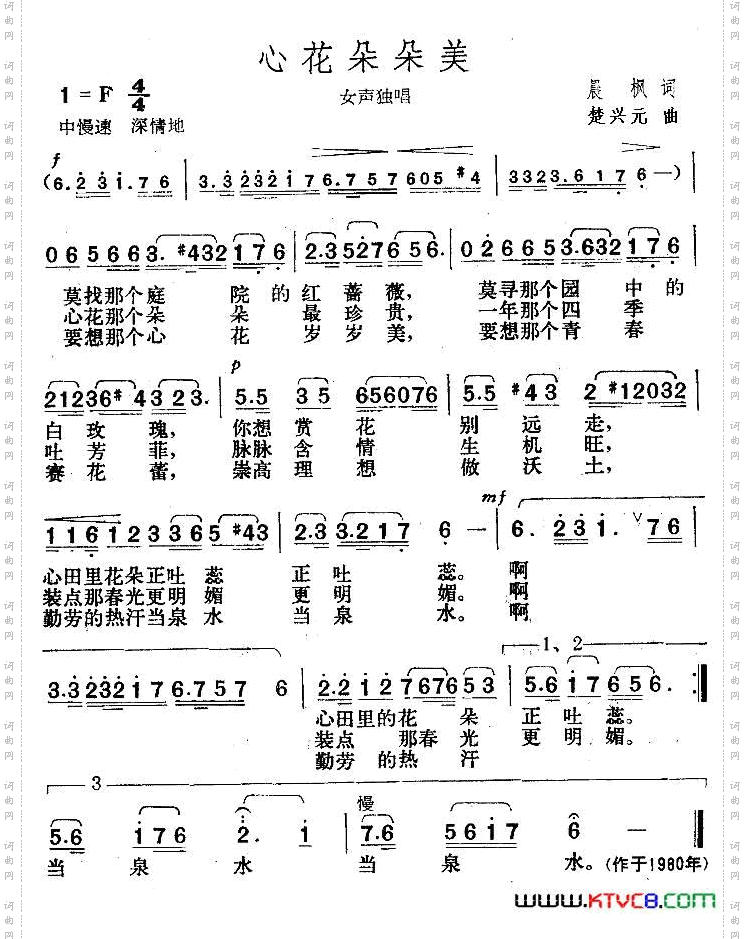 心花朵朵美
1=F 4/4
女声独唱
晨枫 词
中慢速 深情地
楚兴元 曲
f
(6.2 31.76 | 3.3232176.757605 #4 | 3323.6176 —)
065663.#432176 | 2.3527656. | 0266653.632176
莫找那个庭院的红蔷薇，莫寻那个园中的
心花那个朵朵最珍贵，一年那个四季
要想那个心花岁岁美，要想那个青春
p
21236#4323. | 5.5 35 656076 | 5.5 #43 2 #12032
白玫瑰，你想赏花别远走，
吐芳菲，脉脉含情生机旺，
赛花蕾，崇高理想做沃土，
mf
116123365#43 | 2.33.217 6 — | 6. 231. V 76
心田里花朵正吐蕊正吐蕊。啊
装点那春光更明媚更明媚。啊
勤劳的热汗当泉水当泉水。啊
1、2
3.323217 6.757 6 | 2.212767653 | 5.617656. :||
心田里的花朵正吐蕊。
装点那春光更明媚。
勤劳的热汗
3
慢
5.6 176 2. 1 | 7.6 5617 6 —
当泉水当泉水。(作于1980年)
www.KTVC8.com
词曲网